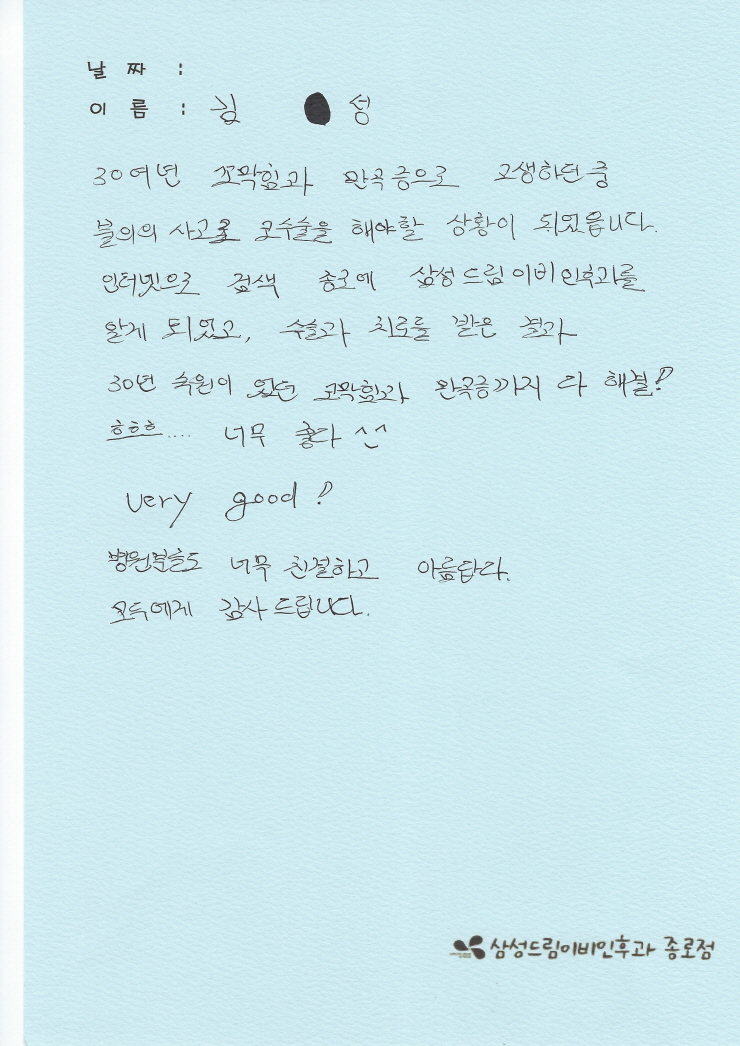 날 짜 :
이 름 : 김 성
30여년 코막힘과 만곡증으로 고생하던 중
불의의 사고로 코수술을 해야할 상황이 되었읍니다.
인터넷으로 검색 종로에 삼성드림이비인후과를
알게 되었고, 수술과 치료를 받은 결과
30년 숙원이 었던 코막힘과 만곡증까지 다 해결!
ㅎㅎㅎ.... 너무 좋다
very good!
병원분들도 너무 친절하고 아름답다.
모두에게 감사드립니다.
삼성드림이비인후과 종로점